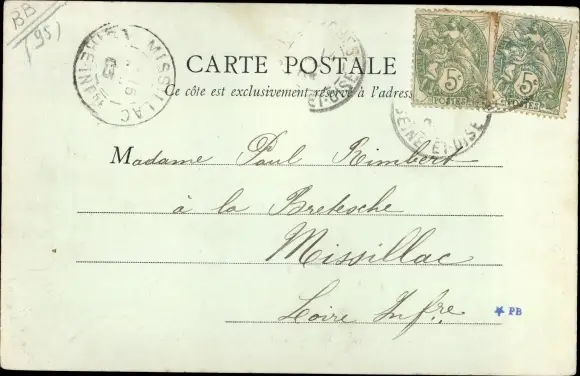 BB
(95)
MISSILLAC
CARTE POSTALE
Ce côte est exclusivement réservé à l'adresse
5c
POSTES
5c
POSTES
SEINE-ET-OISE
Madame Paul Rimbert
à la Bretesche
Missillac
Loire Infre
PB